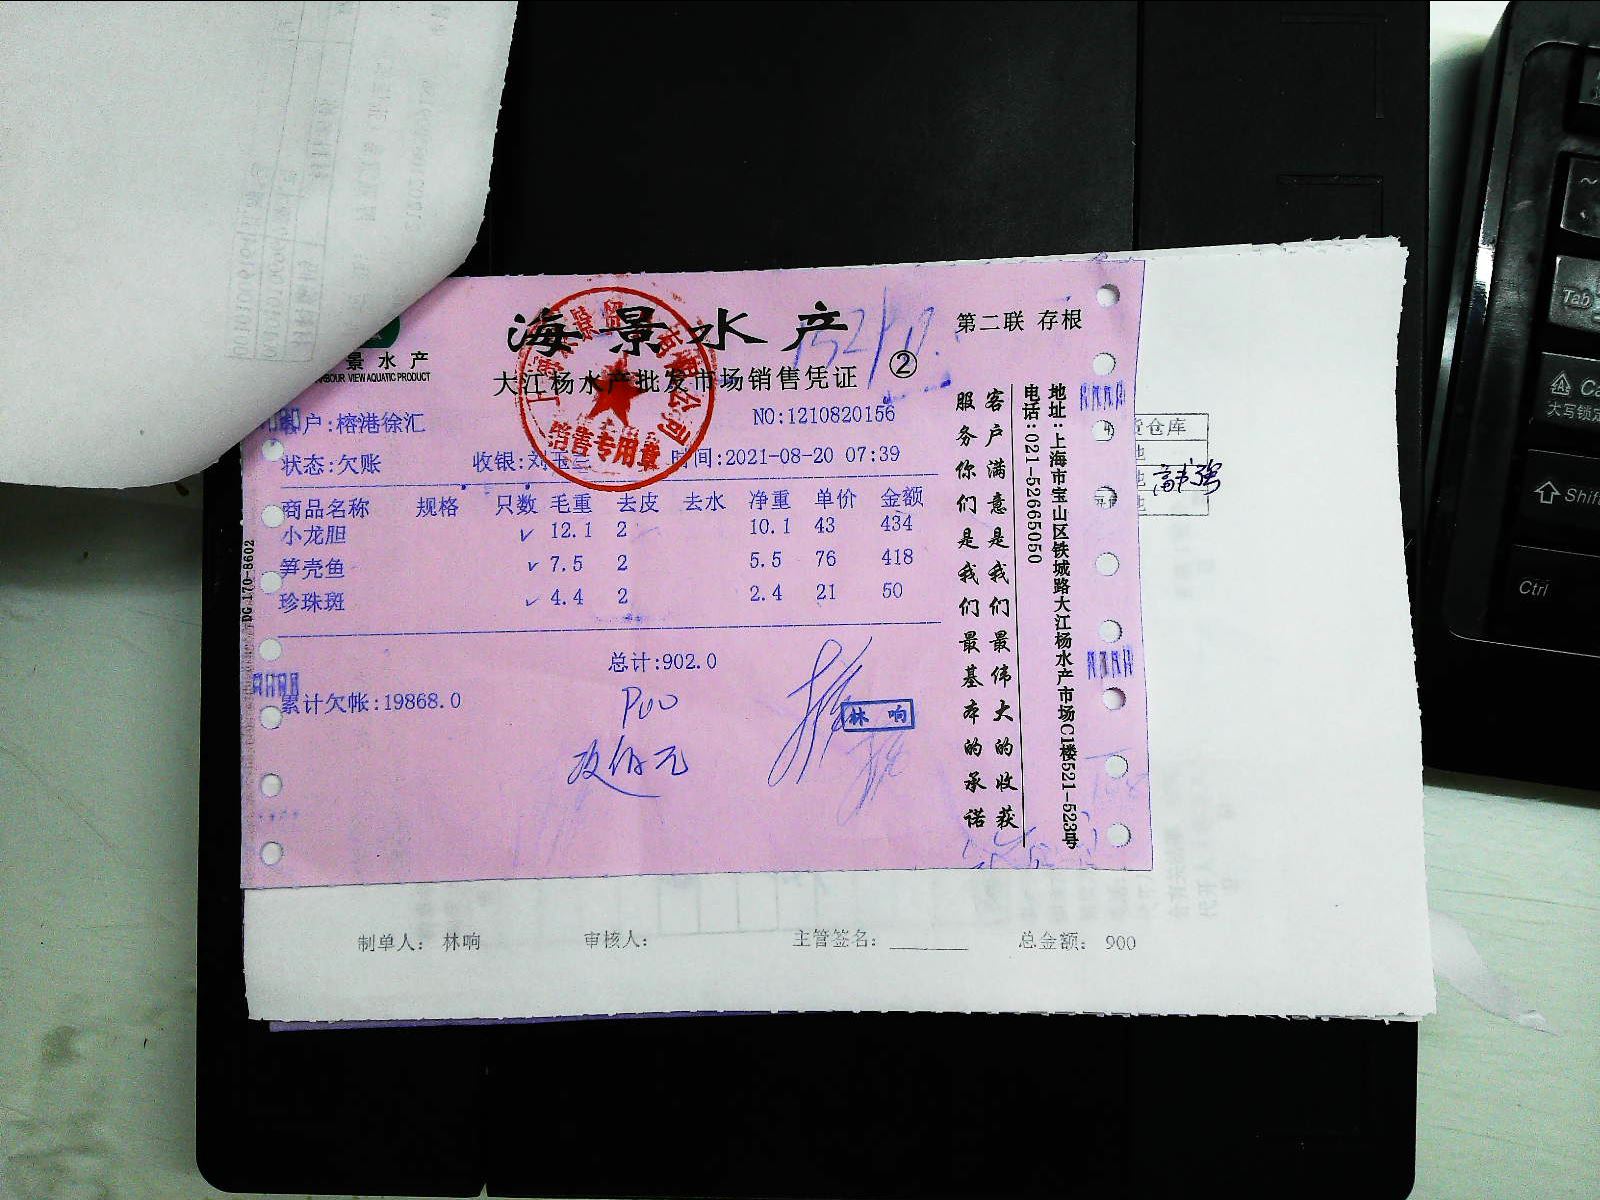 海景水产
第二联 存根
景水产
BOUR VIEW AQUATIC PRODUCT
大江杨水产批发市场销售凭证
②
户:榕港徐汇
NO:1210820156
状态:欠账
收银:刘玉
时间:2021-08-20 07:39
商品名称 规格 只数 毛重 去皮 去水 净重 单价 金额
小龙胆 12.1 2 10.1 43 434
笋壳鱼 7.5 2 5.5 76 418
珍珠斑 4.4 2 2.4 21 50
总计:902.0
累计欠帐:19868.0
林响
销售专用章
客户满意是我们最伟大的收获
服务你们是我们最基本的承诺
地址:上海市宝山区铁城路大江杨水产市场C1楼521-523号
电话:021-52665050
DG 170-8602
货仓库
制单人: 林响
审核人:
主管签名:
总金额: 900
Tab
大写锁定
Shift
Ctrl